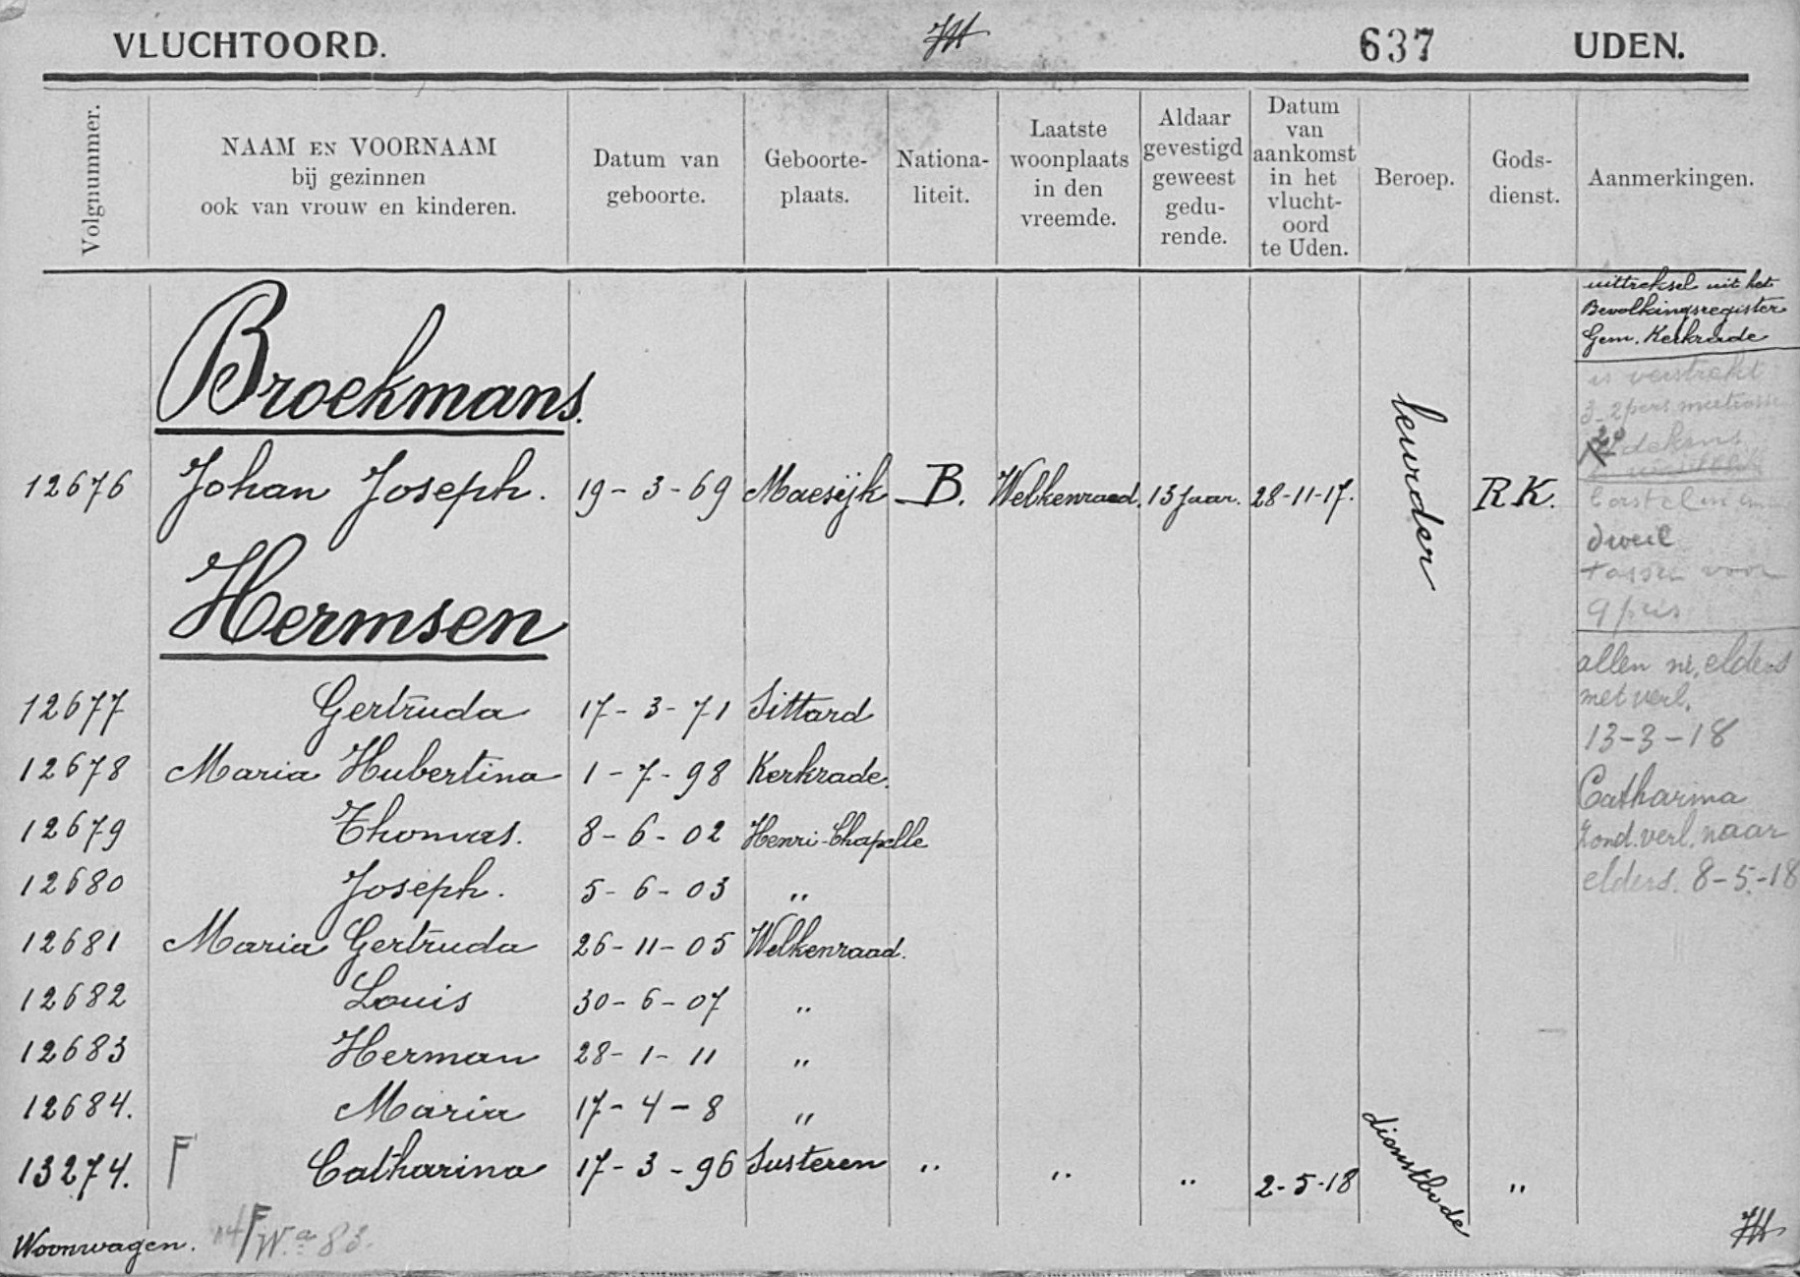 VLUCHTOORD. 637 UDEN.
Volgnummer.
NAAM EN VOORNAAM
bij gezinnen
ook van vrouw en kinderen.
Datum van
geboorte.
Geboorte-
plaats.
Nationa-
liteit.
Laatste
woonplaats
in den
vreemde.
Aldaar
gevestigd
geweest
gedu-
rende.
Datum
van
aankomst
in het
vlucht-
oord
te Uden.
Beroep.
Gods-
dienst.
Aanmerkingen.
Broekmans.
12676 Johan Joseph. 19-3-69 Maesijk B. Welkenraed. 13 Jaar. 28-11-17. leurder R.K.
Hermsen
12677 Gertruda 17-3-71 Sittard
12678 Maria Hubertina 1-7-98 Kerkrade.
12679 Thomas. 8-6-02 Henri-Chapelle
12680 Joseph. 5-6-03 "
12681 Maria Gertruda 26-11-05 Welkenraad.
12682 Louis 30-6-07 "
12683 Herman 28-1-11 "
12684. Maria 17-4-8 "
13274. F Catharina 17-3-96 Susteren " " " 2-5-18 dienstbode "
Woonwagen. 14 F W.a 83.
uittreksel uit het
Bevolkingsregister
Gem. Kerkrade
is verstrekt
3-2 pers
20 dekens
dweil
tassen voor
9 pers
allen nr. elders
met verl.
13-3-18
Catharina
zond. verl. naar
elders. 8-5-18